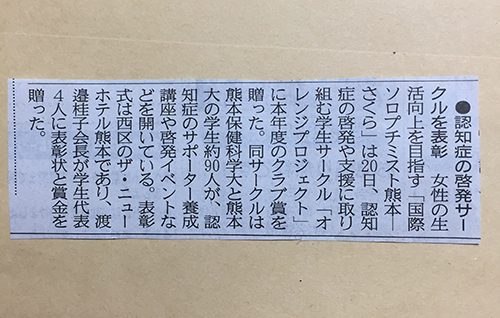 ●認知症の啓発サー
クルを表彰　女性の生
活向上を目指す「国際
ソロプチミスト熊本―
さくら」は20日、認知
症の啓発や支援に取り
組む学生サークル「オ
レンジプロジェクト」
に本年度のクラブ賞を
贈った。同サークルは
熊本保健科学大と熊本
大の学生約90人が、認
知症のサポーター養成
講座や啓発イベントな
どを開いている。表彰
式は西区のザ・ニュー
ホテル熊本であり、渡
邉桂子会長が学生代表
4人に表彰状と賞金を
贈った。